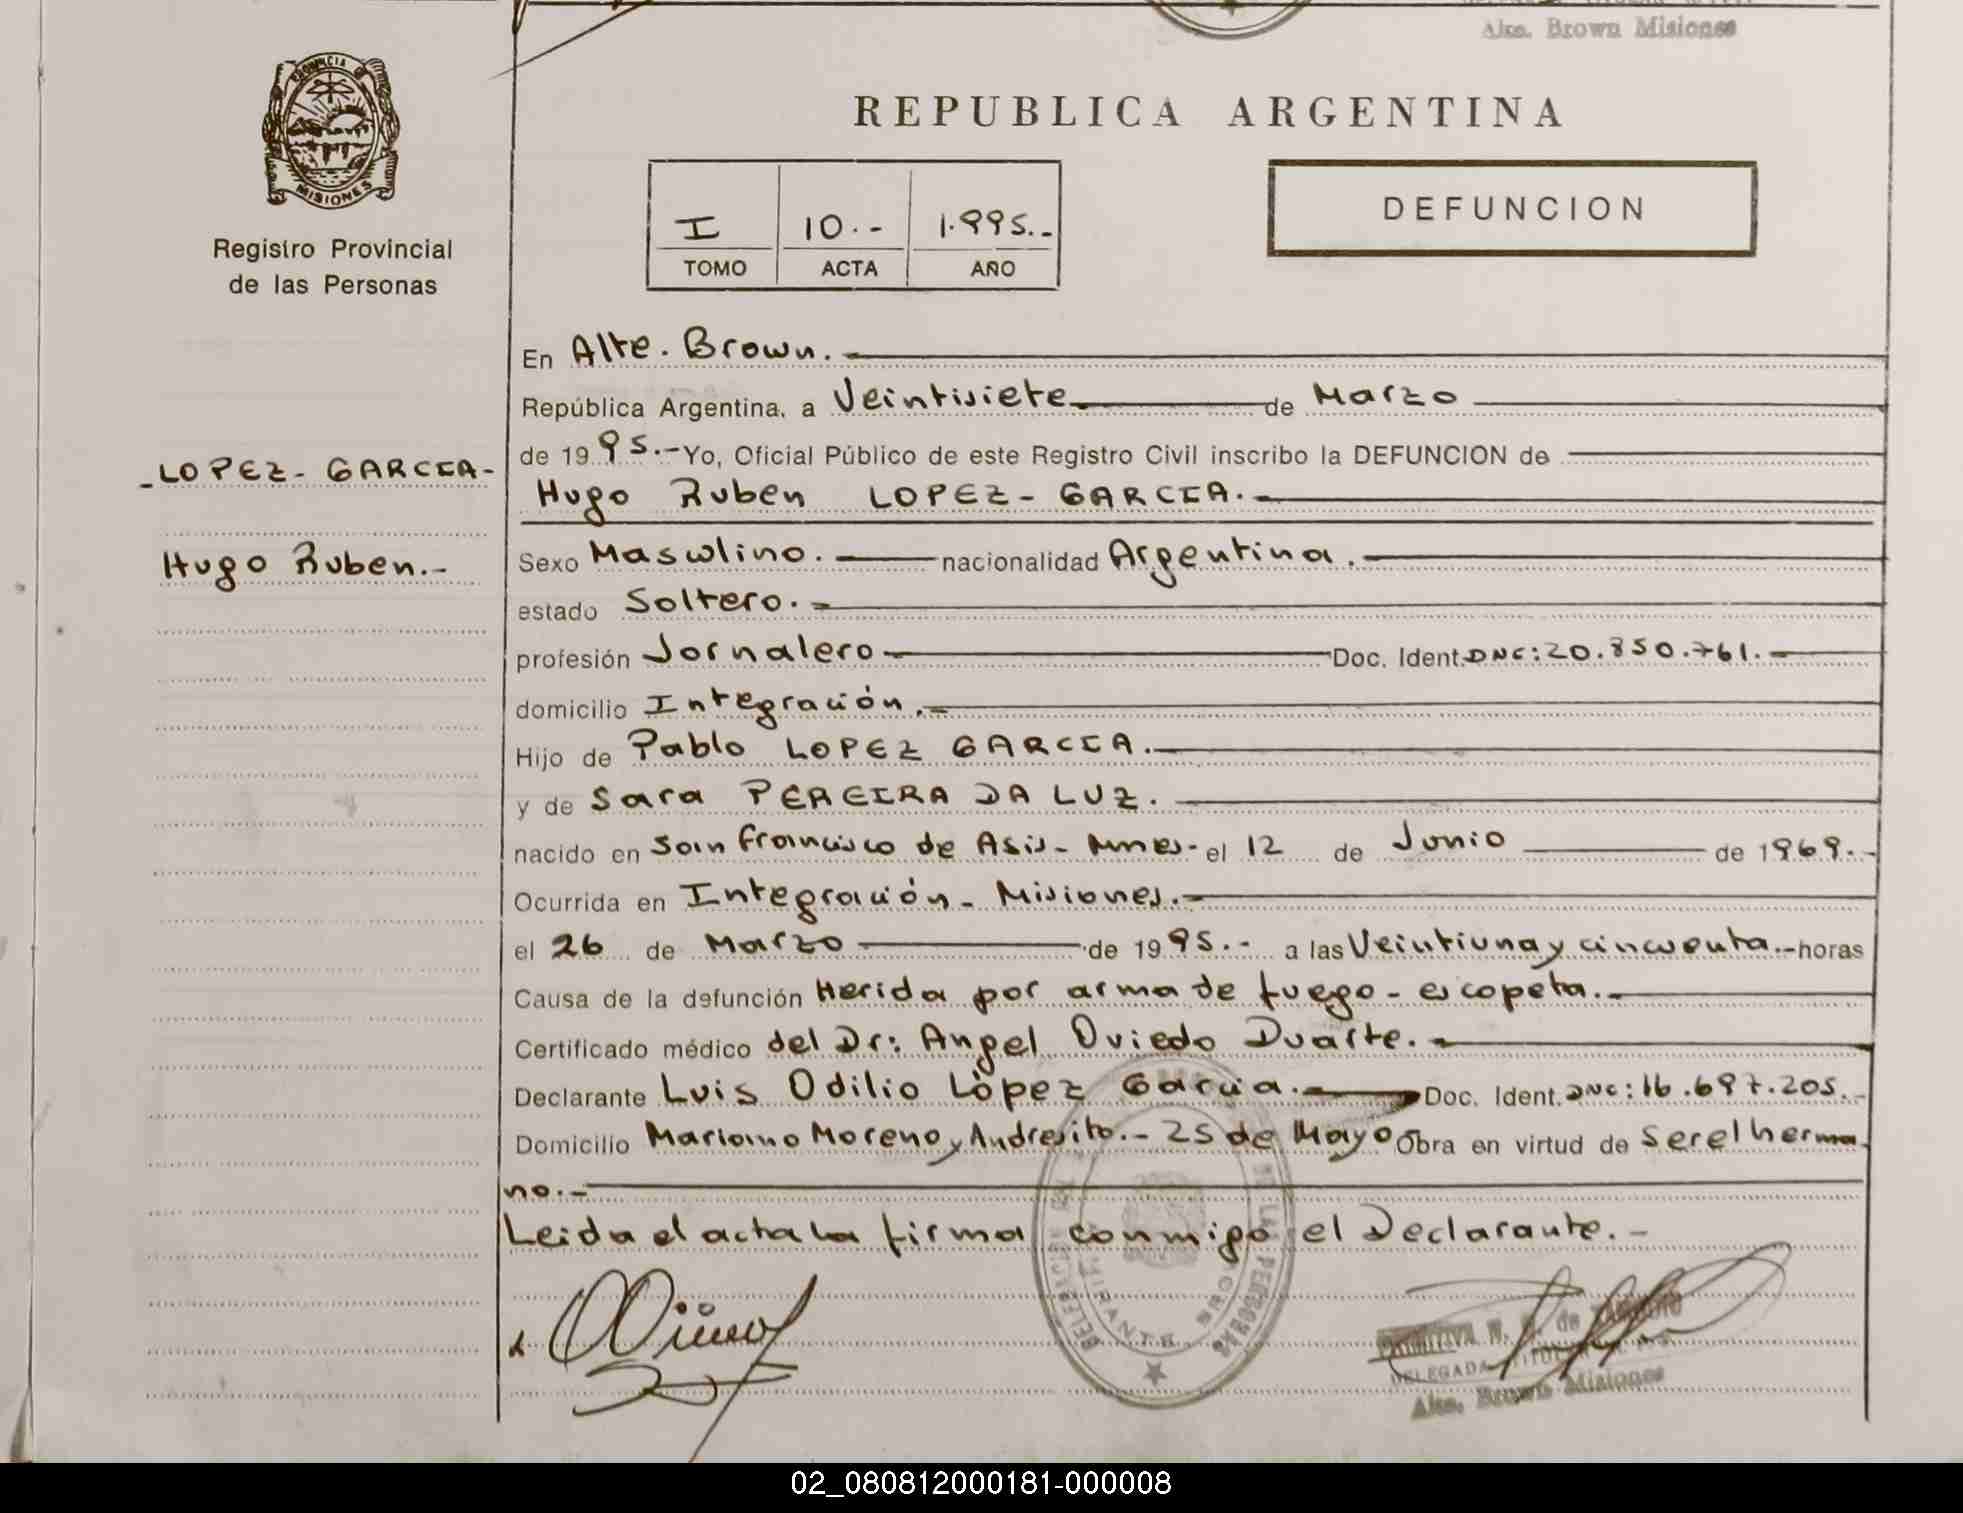 Alte. Brown Misiones
PROVINCIA DE
MISIONES
Registro Provincial
de las Personas
REPUBLICA ARGENTINA
I 10.- 1.995.-
TOMO ACTA AÑO
DEFUNCION
En Alte. Brown.
República Argentina, a Veintisiete de Marzo
de 1995.- Yo, Oficial Público de este Registro Civil inscribo la DEFUNCION de
-LOPEZ-GARCIA-
Hugo Ruben LOPEZ-GARCIA.-
Hugo Ruben.-
Sexo Masculino. nacionalidad Argentina.
estado Soltero.-
profesión Jornalero Doc. Ident. DNI: 20.850.761.-
domicilio Integración.-
Hijo de Pablo LOPEZ GARCIA.-
y de Sara PEREIRA DA LUZ.
nacido en San Francisco de Asis- Mnes- el 12 de Junio de 1969.-
Ocurrida en Integración- Misiones.-
el 26 de Marzo de 1995.- a las Veintiuna y cincuenta.- horas
Causa de la defunción Herida por arma de fuego- escopeta.-
Certificado médico del Dr: Angel Oviedo Duarte.-
Declarante Luis Odilio López Garcia.- Doc. Ident. DNI: 16.697.205.-
Domicilio Mariano Moreno y Andresito.- 25 de Mayo Obra en virtud de Ser el herma-
no.-
Leida el acta la firma conmigo el Declarante.-
DE LAS PERSONAS
ALMIRANTE BROWN
DELEGADA TITULAR
Alte. Brown Misiones
02_080812000181-000008